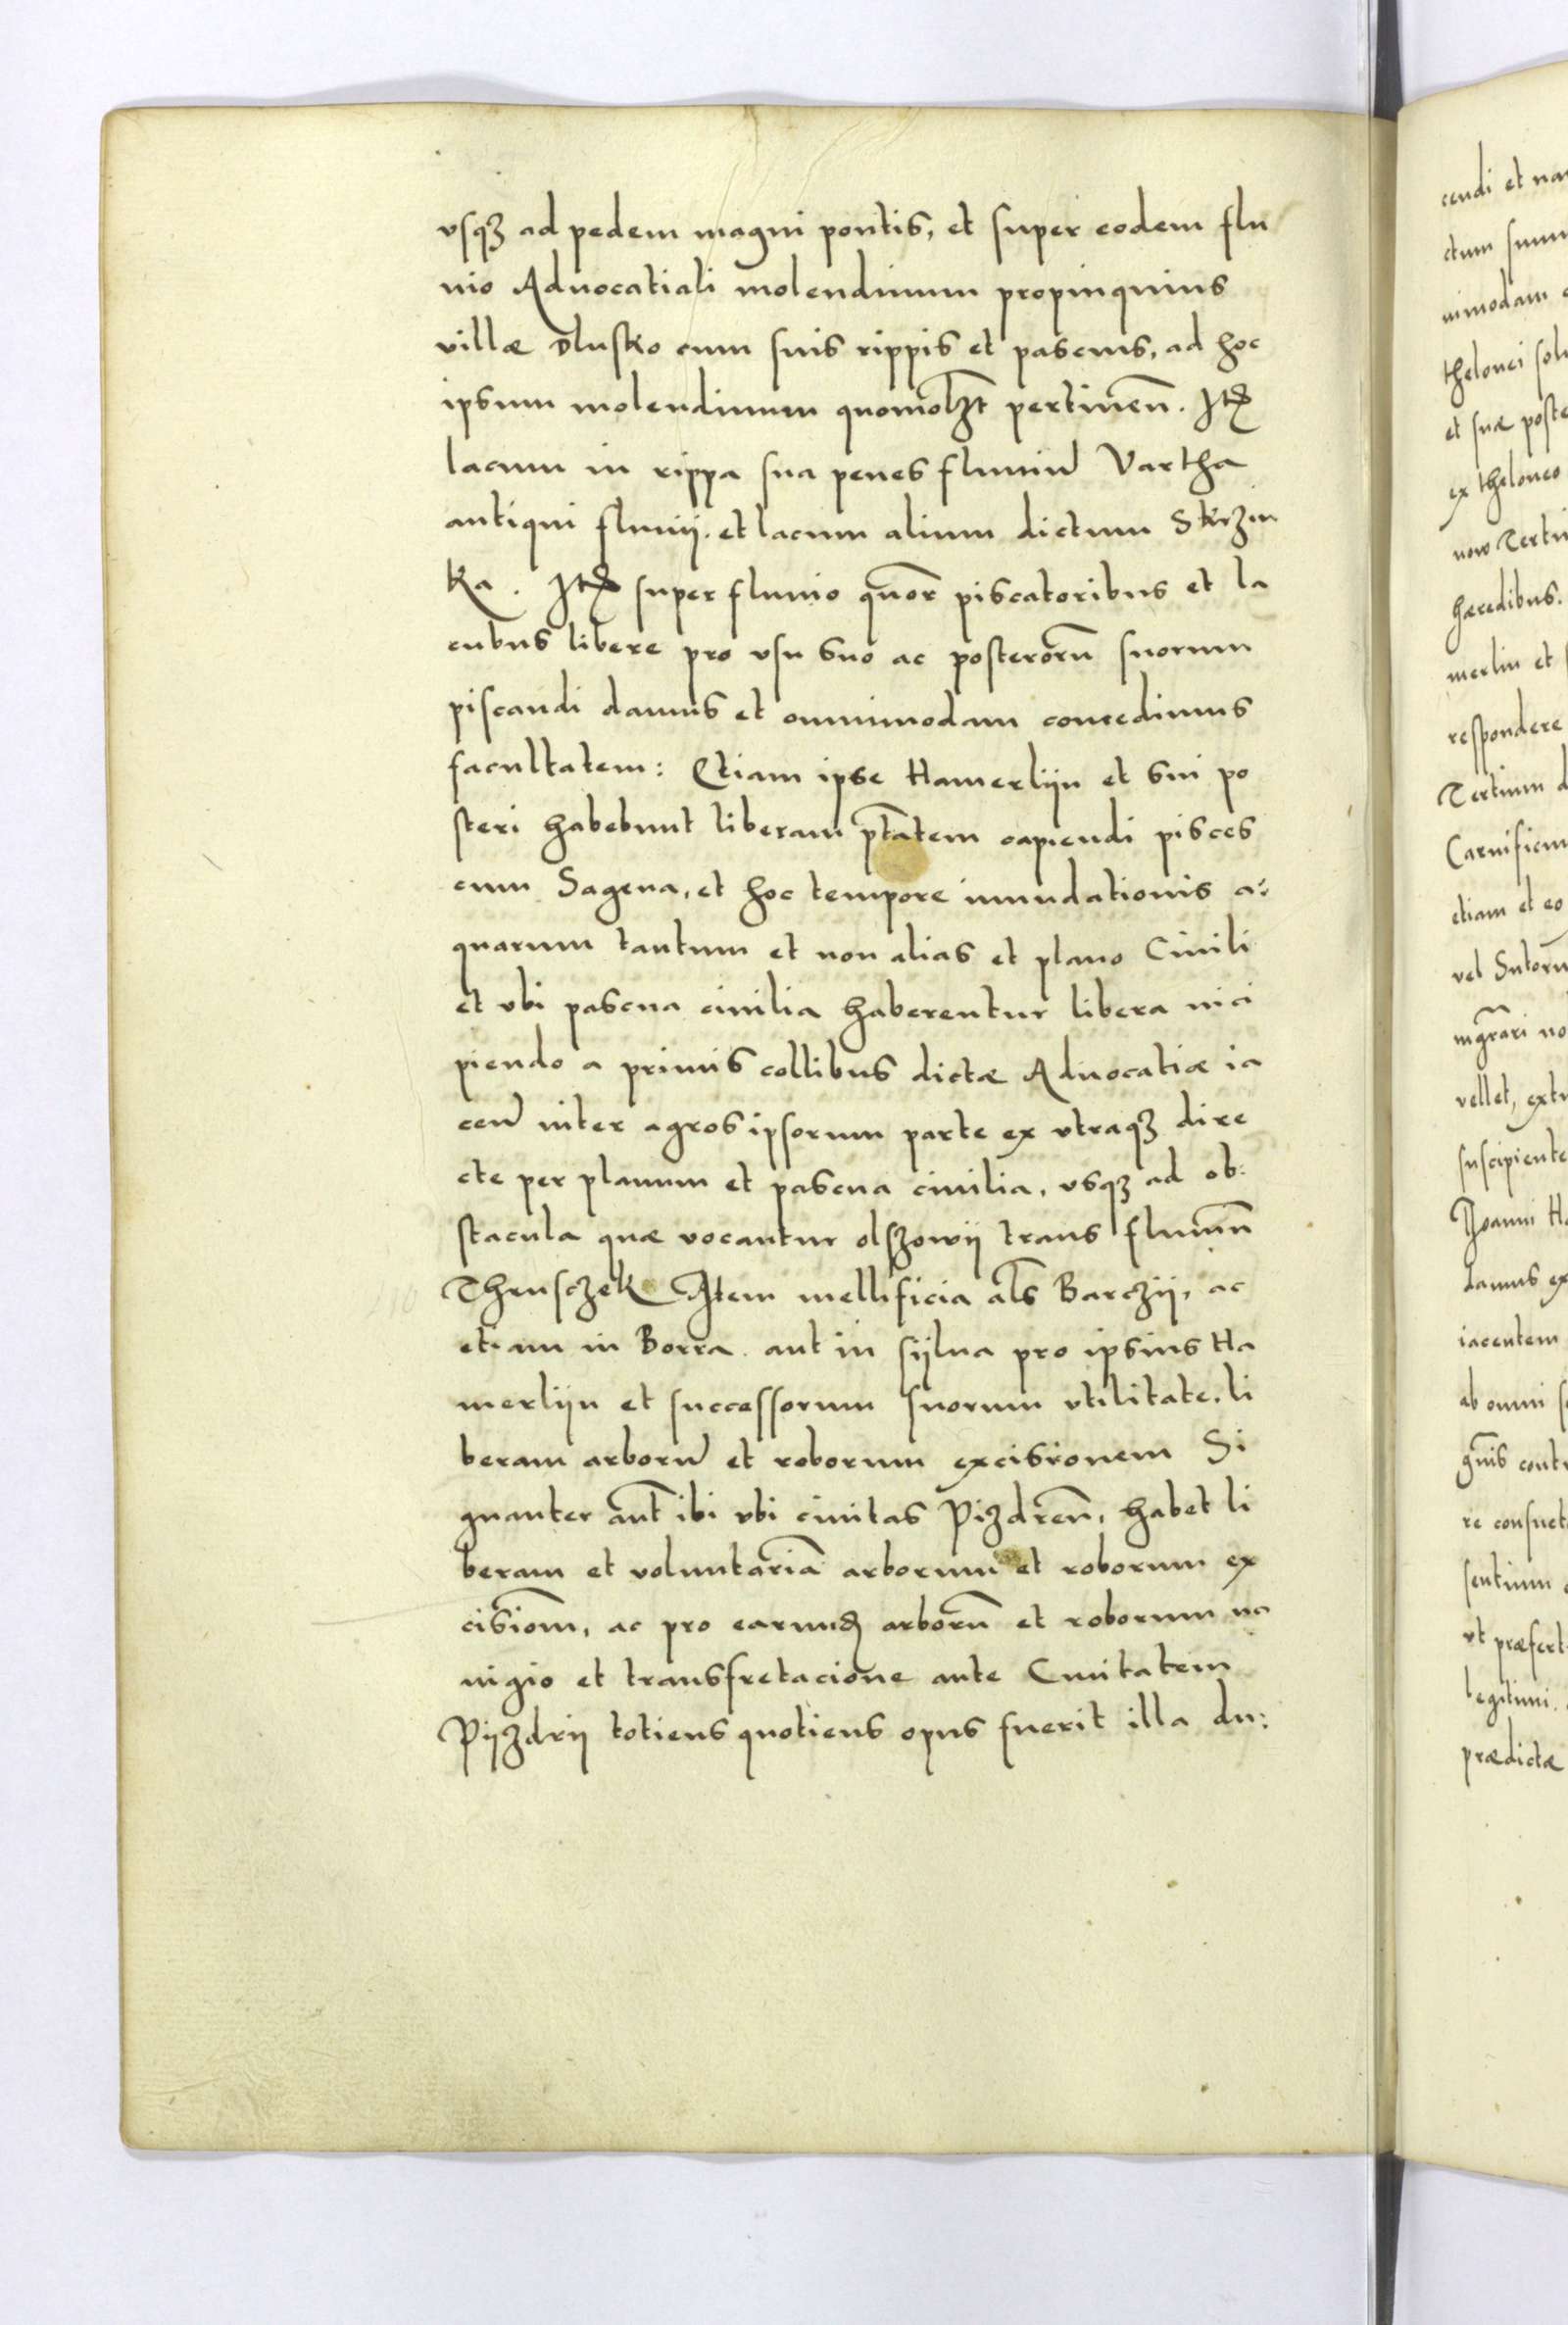 vsqȝ ad pedem magni pontis, et super eodem flu
uio Aduocatiali molendinum propinquius
villæ Dlusko cum suis rippis et pascuis, ad hoc
ipsum molendinum quomolȝt pertinen̄. Itꝫ
lacum in rippa sua penes fluuiū Vartha
antiqui fluuij. et lacum alium dictum Skrzin
ka. Itꝫ super fluuio quor̄ piscatoribus et la
cubus libere pro vsu suo ac posterorū suorum
piscandi damus et omnimodam concedimus
facultatem: Etiam ipse Hamerlijn et sui po
steri habebunt liberam ptātem capiendi pisces
cum Sagena, et hoc tempore inundationis a:
quarum tantum et non alias et plano Ciuili
et vbi pascua ciuilia haberentur libera inci
piendo a primis collibus dictæ Aduocatiæ ia
cen̄ inter agros ipsorum parte ex vtraqȝ dire
cte per planum et pascua ciuilia, vsqȝ ad ob:
stacula quæ vocantur olszowij trans fluuiū
Thrusczek Item mellificia als̄ Barczij, ac
etiam in Borra. aut in sijlua pro ipsius Ha
merlijn et successorum suorum vtilitate. li
beram arborū et roborum excisionem Si
gnanter aut̄ ibi vbi ciuitas Pizdren̄, habet li
beram et voluntariā arborum et roborum ex
cisiom̄, ac pro earundꝫ arborū et roborum na
uigio et transfretacione ante Ciuitatem
Pijzdrij totiens quotiens opus fuerit illa du:
cendi et na
ctum suum
nimodam
thelonei sol
et suæ poste
ex theloneo
now Terti
hæredibus.
merlin et
respondere
Tertium d
Carnificum
etiam et eo
vel Sutorū
vellet, extr
suscipiente
Joanni Ha
damus ex
iacentem
ab omni s
gnīs contr
re consuet
sentium
vt præfert
legitimi.
prædictæ